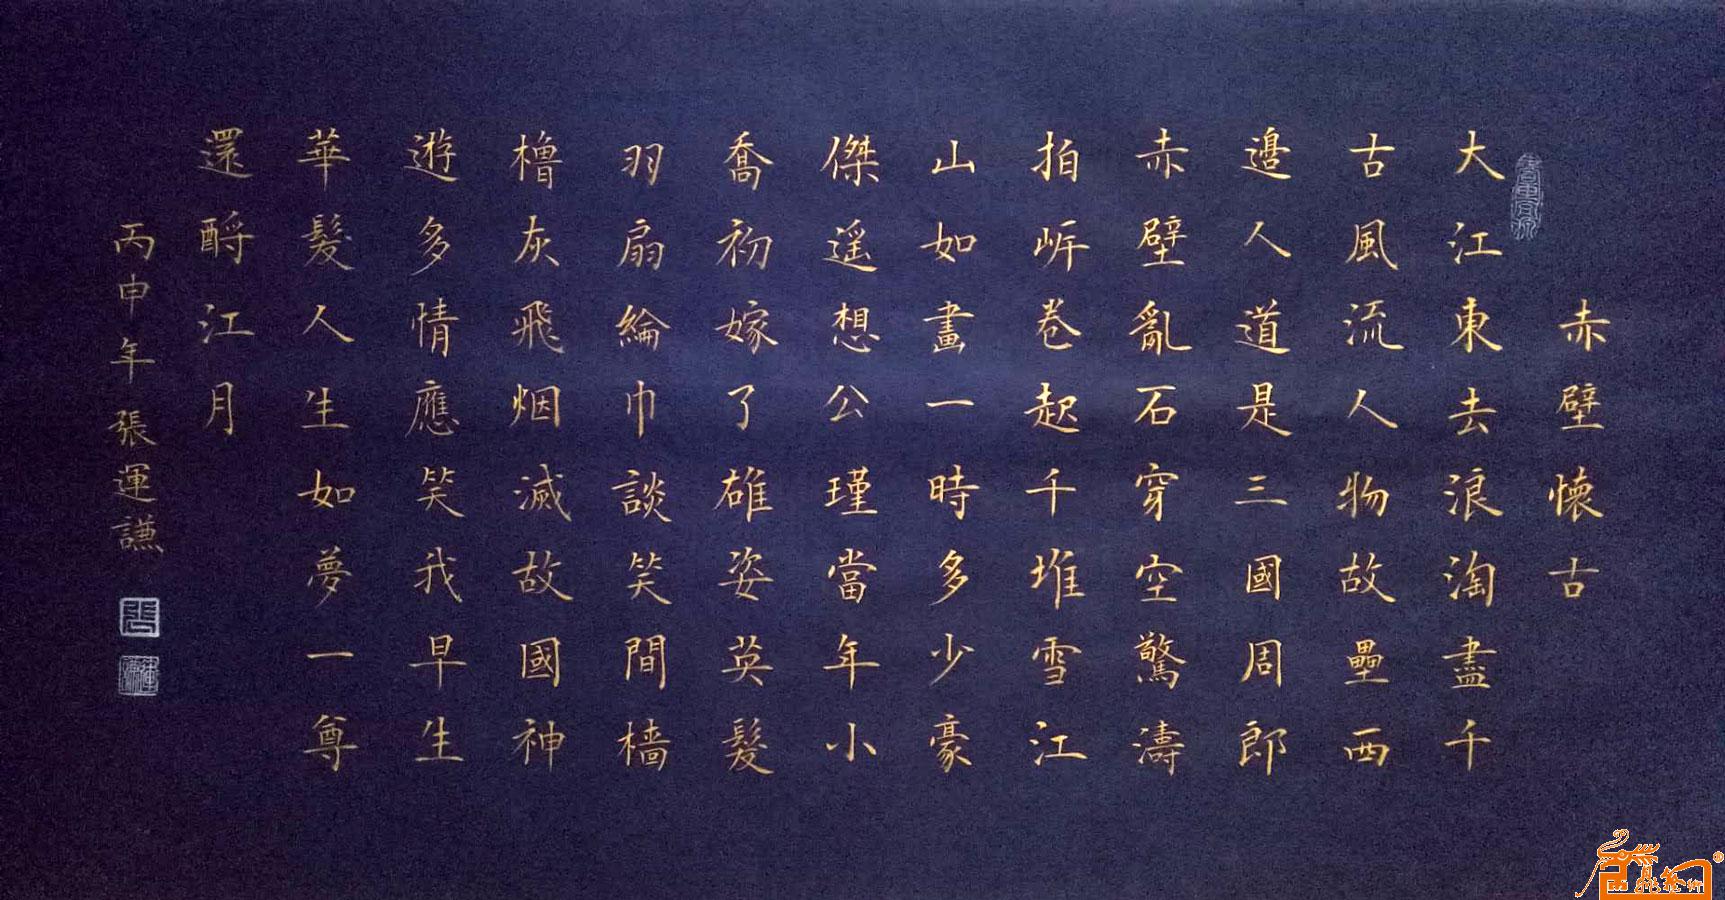 赤壁懷古
大江東去浪淘盡千
古風流人物故壘西
邊人道是三國周郎
赤壁亂石穿空驚濤
拍岍卷起千堆雪江
山如畫一時多少豪
傑遥想公瑾當年小
喬初嫁了雄姿英髮
羽扇綸巾談笑間檣
櫓灰飛烟滅故國神
遊多情應笑我早生
華髮人生如夢一尊
還酹江月
丙申年張運謙